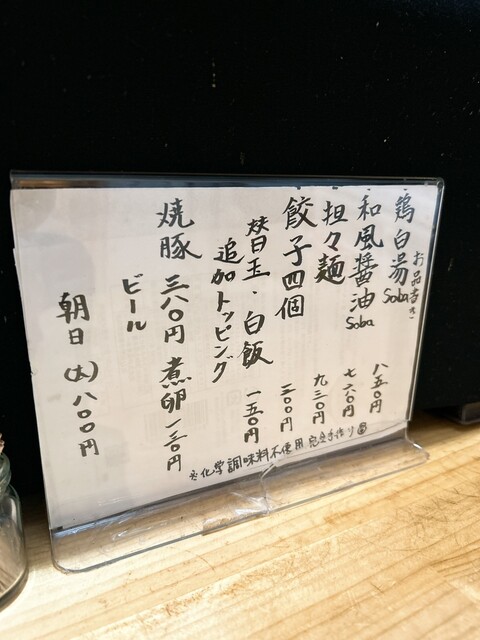 お品書き
鶏白湯Soba 八五〇円
和風醤油Soba 七六〇円
担々麺 九三〇円
餃子四個 三〇〇円
替玉・白飯 一五〇円
追加トッピング
焼豚 三八〇円 煮卵 一三〇円
ビール
朝日(大)八〇〇円
※化学調味料不使用 完全手作り